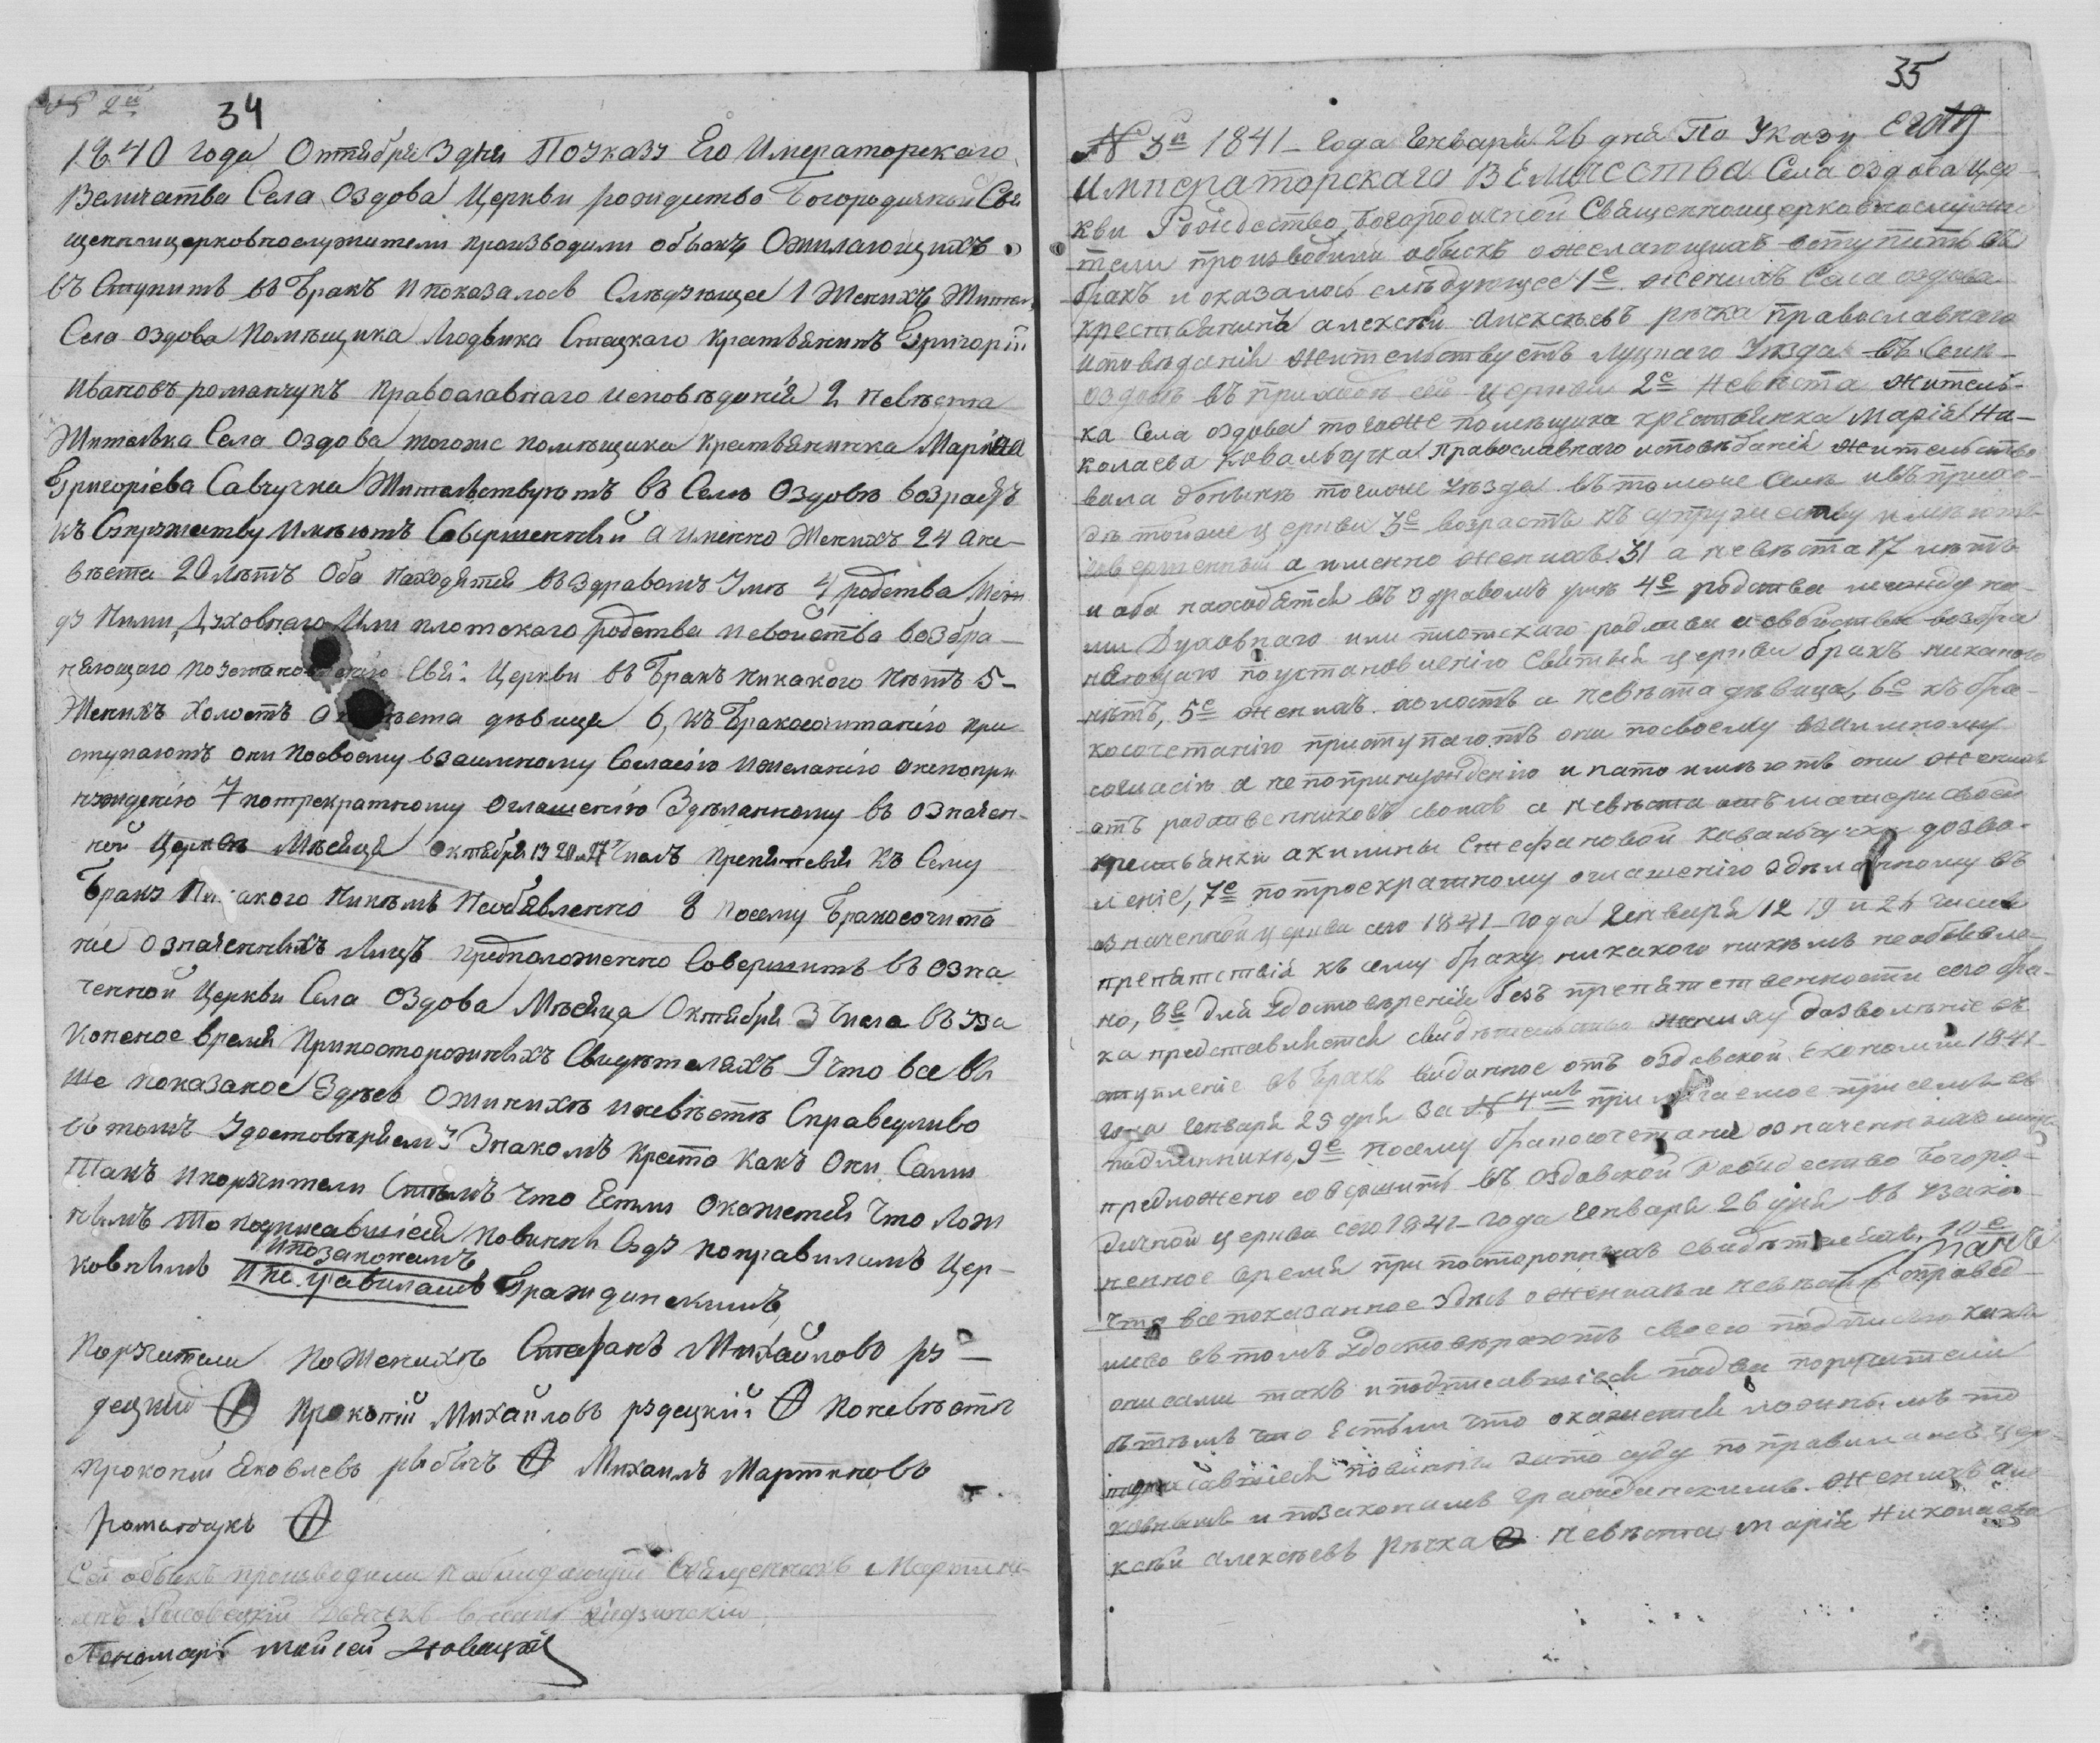 34
1840 года Октября 3 дня По указу Его Императорского
Величества Села Оздова Церкви рождество Богородичный Свя
щенноицерковнослужители производили обыскъ Ожилающихъ
въ Ступить въ Бракъ и показалось Слѣдующее 1 Женихъ Жител
Села Оздова Помѣщика Людвика Стецкаго Крестьянинъ Григорій
Ивановъ романчукъ Православнаго исповѣданія 2 невѣста
Жителька Села Оздова тогоже помѣщика Крестьянинка Марія
Григоріева Савчучка Жительствуютъ въ Селѣ Оздовѣ возрастъ
къ Супружеству Имѣютъ Совершенный а именно Женихъ 24 а не-
вѣста 20 лѣтъ Оба находятся въ здравомъ Умѣ 4 родства Меж
ду Ними Духовнаго Или плотскаго родства и свойства возбра-
няющаго Церкви въ Бракъ Никакого Нѣтъ 5-
Женихъ Холостъ дѣвица 6, къ Бракосочитанію при
ступаютъ они Посвоему взаимному Согласію и желанію а непопри
нуждению 7 потрекратному Оглашенію Здѣланному въ означен-
ной Церквѣ Мѣсяца октября 13 20 и 27 Числъ Препятсвія къ Сему
Браку Никакого Никѣмъ Необъявленно 8 посему Бракосочита
ніе означенныхъ Лицъ предположенно Совершить въ озна
ченной Церкви Села Оздова Мѣсяца Октября 3 Числа въ Уза
коненое время Припосторожныхъ Свидѣтеляхъ 9 что все вы
ше показаное Здѣсь Ожинихѣ иневѣстѣ Справедливо
въ томъ Удостовѣряемъ Знакомъ Креста Какъ Они Сами
Такъ и поручители Стѣмъ Что Естли Окажется Что Лож
нымъ То подписавшіеся Повинны Суду поправиламъ Цер-
ипозаконамъ
ковнымъ и по правиламъ Гражданскимъ
Поручители По Женихѣ Стефанъ Михайлово ру-
децкій Прокопій Михайловъ рудецкій Поневѣстѣ
прокопій Яковлевъ рыбычъ Михаилъ Мартиновъ
романчукъ
Сей обыскъ производили наблюдающій Священникъ Мартини-
анъ
Пономарь Мойсей Новицкій
35
№ 3й 1841 года Генваря 26 дня По Указу Его
Императорскаго ВЕличества Села оздова Цер-
кви Рождество Богородичной Священноицерковнослужи
тели производили обыскъ ожелающихъ вступить въ
бракъ и оказалось слѣдующее 1е женихъ Села оздова
крестьянинъ алексѣй Алексѣевъ рѣчка православнаго
исповѣданія жительствуетъ луцкаго Уѣзда въ Селѣ
оздовѣ въ приходѣ сей церкви 2е Невѣста жители-
ка Села оздова тогоже помѣщика крестьянка Марія Ни-
колаева Ковальчучка Православнаго исповѣданія жительство
вала донынѣ тогоже уѣзда въ томже Селѣ ивъ прихо-
дѣ тойже церкви 3е возрастъ къ супружеству имѣютъ
совершенный а именно женихъ 31 а невѣста 17 лѣтъ
и оба находятся въ здравомъ умѣ 4е родства между ни-
ми Духовнаго или плотскаго родства и свойства возбра
няющаго поустановленію Святыя церкви бракъ никакого
нѣтъ, 5е женихъ холостъ а невѣста дѣвица, 6е къ бра-
косочетанію приступаютъ они посвоему взаимному
согласію а непопринужденію и нато имѣютъ они женихъ
отъ родственниковъ своихъ а невѣста отъ матери своей
крестьянки акилины Стефановой Ковальчучки дозво-
леніе, 7е потроекратному оглашенію здѣланному въ
означенной церкви сего 1841 года Генваря 12 19 и 26 числъ
препятствія къ сему браку никакого никѣмъ необъявле-
но, 8е Для Удостовѣренія безъ препятственности сего бра-
ка представляется свидѣтельство жениху дозволѣніе въ
ступленіе въ бракъ виданное отъ оздовской Економіи 1841
года Генваря 25 дня за № 4мъ прилагаемое присемъ въ
подлинникѣ, 9е посему бракосочетаніе означенныхъ лицъ
предложено совершить въ оздовской Рождество Богоро-
дичной церкви сего 1841 года Генваря 26 дня въ узако-
ненное время при постороннихъ свидѣтеляхъ, 10е
Что все показанное здѣсь о женихѣ и невѣстѣ справед-
ливо въ томъ Удостовѣряютъ своею подписью какъ
они сами такъ и подписавшіеся
стѣмъ что Естьли что окажется ложнымъ то
подписавшіеся повинны зато суду поправиламъ цер-
ковнымъ и позаконамъ гражданскимъ. женихъ але-
ксѣй Алексѣевъ Рѣчка невѣста Марія Николаева